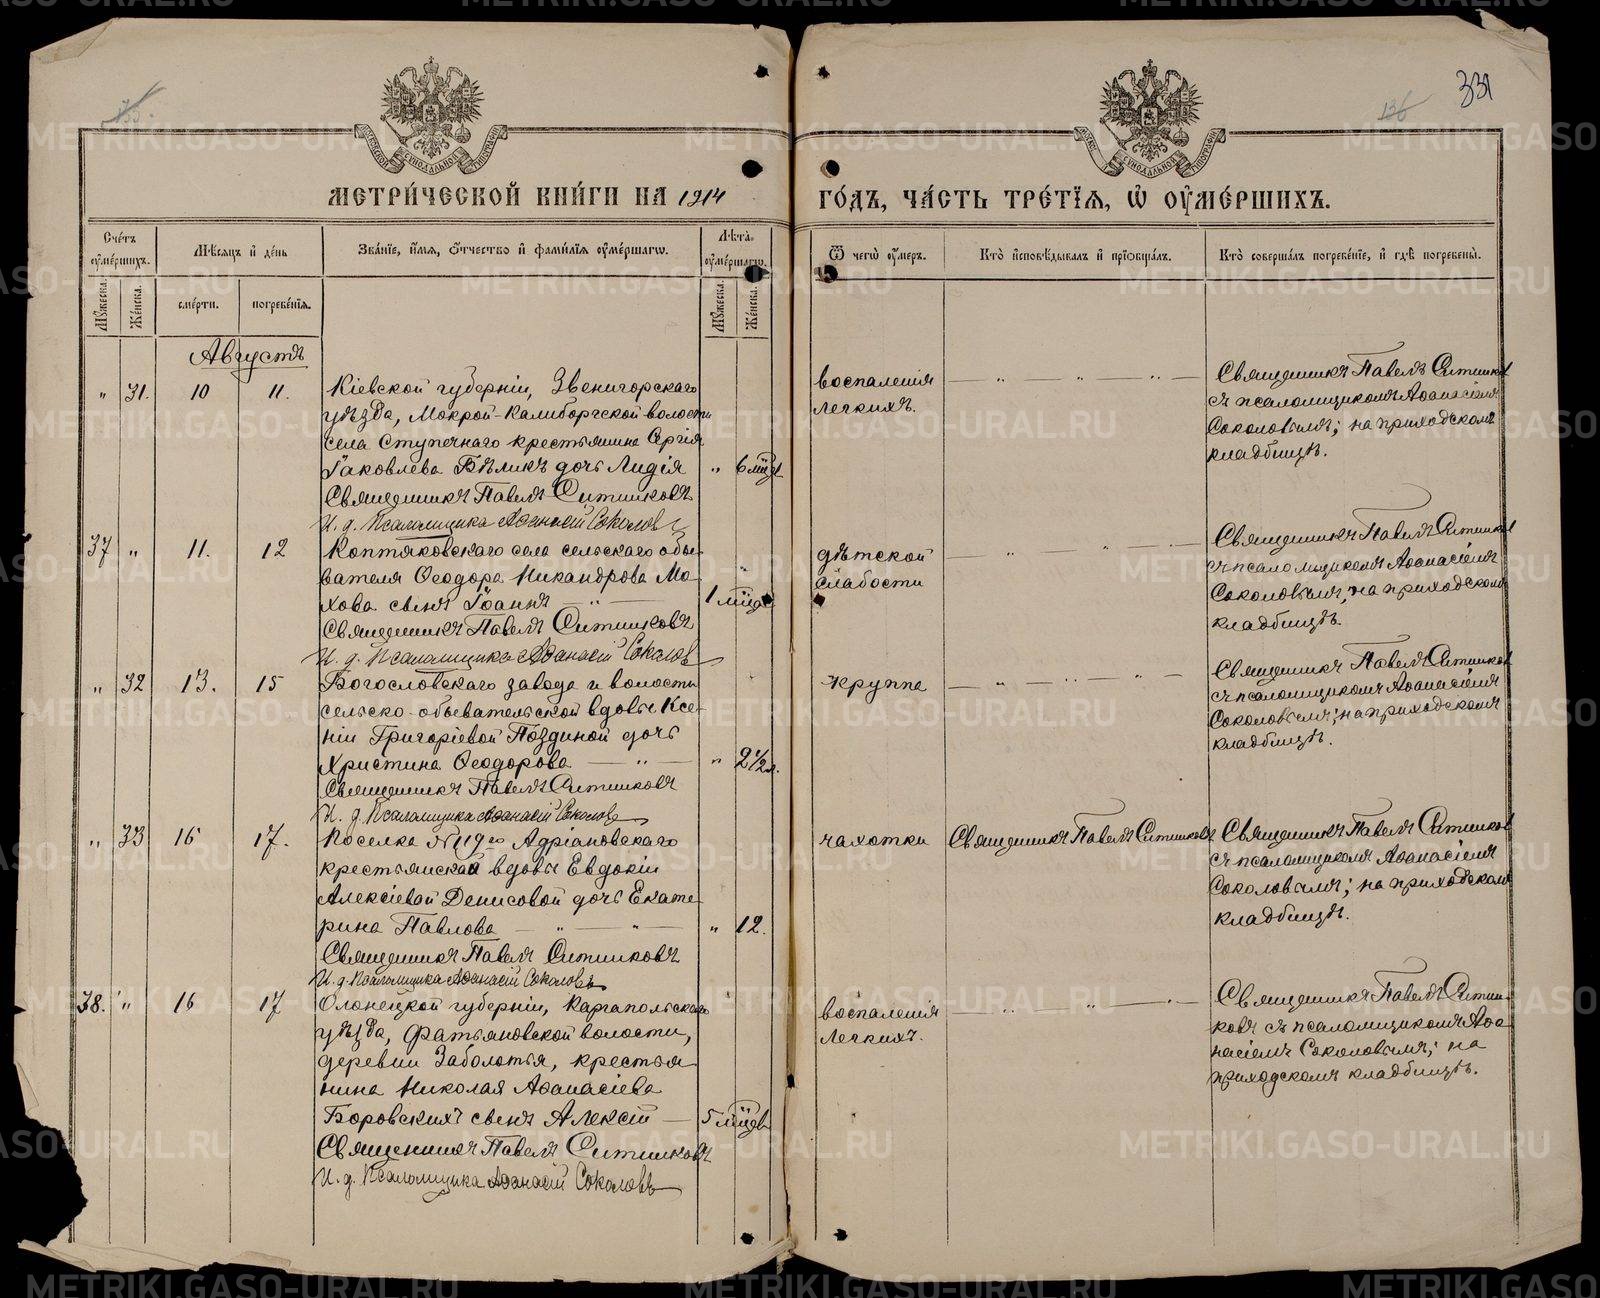 331
135.
136
МОСКОВСКОЙ СѴНОДАЛЬНОЙ ТИПОГРАФІИ
МЕТРИ́ЧЕСКОЙ КНИ́ГИ НА 1914
ГО́ДЪ, ЧА́СТЬ ТРЕ́ТІЯ, Ѡ ОУМЕ́РШИХЪ.
Сче́тъ оуме́ршихъ.
Мѣ́сяцъ и де́нь
Зва́нїе, и́мя, о́тчество и фами́лїя оуме́ршагѡ.
Лѣ́та оуме́ршагѡ.
Ѿ чегѡ̀ оу́меръ.
Кто̀ и҆сповѣ́дывалъ и҆ прїѡбща́лъ.
Кто̀ соверша́лъ погребе́нїе, и҆ гдѣ̀ погребены̀.
Му́жеска.
Же́нска.
сме́рти.
погребе́нїя.
Му́жеска.
Же́нска.
Августъ
" 31. 10 11. Кіевской губерніи, Звенигорскаго
уѣзда, Мокрой-Калиборгской волости
села Ступечнаго крестьянина Сергія
Іаковлева Бѣликъ дочь Лидія " 6 мѣс.
Священникъ Павелъ Ситниковъ
И. д. Псаломщика Аѳанасій Соколовъ
воспаленія
легкихъ.
Священникъ Павелъ Ситников
съ псаломщикомъ Аѳанасіемъ
Соколовымъ; на приходскомъ
кладбищѣ.
37 " 11. 12 Коптяковскаго села сельскаго обы-
вателя Ѳеодора Никандрова Мо-
хова сынъ Іоаннъ 1 мѣс.
Священникъ Павелъ Ситниковъ
И. д. Псаломщика Аѳанасій Соколов
дѣтской
слабости
Священникъ Павелъ Ситников
съ псаломщикомъ Аѳанасіемъ
Соколовымъ, на приходскомъ
кладбищѣ.
" 32 13. 15 Богословскаго завода и волости
сельско-обывательской вдовы Ксе-
ніи Григоріевой Поздиной дочь
Христина Ѳеодорова " 2 1/2 л.
Священникъ Павелъ Ситниковъ
И. д. Псаломщика Аѳанасій Соколовъ
круппа
Священникъ Павелъ Ситников
съ псаломщикомъ Аѳанасіемъ
Соколовымъ; на приходскомъ
кладбищѣ.
" 33 16 17. Поселка №119го Адріановскаго
крестьянской вдовы Евдокіи
Алексіевой Денисовой дочь Екате-
рина Павлова " 12.
Священникъ Павелъ Ситниковъ
И. д. Псаломщика Аѳанасій Соколовъ
чахотки
Священникъ Павелъ Ситниковъ
Священникъ Павелъ Ситников
съ псаломщикомъ Аѳанасіемъ
Соколовымъ; на приходском
кладбищѣ.
38. " 16 17 Олонецкой губерніи, Каргапольскаго
уѣзда, Фатьяновской волости,
деревни Заболотья, крестья-
нина Николая Аѳанасіева
Боровскихъ сынъ Алексій 5 мѣсев
Священникъ Павелъ Ситниковъ
И. д. Псаломщика Аѳанасій Соколовъ
воспаленія
легкихъ.
Священникъ Павелъ Ситни-
ковъ съ псаломщикомъ Аѳа-
насіемъ Соколовымъ; на
приходскомъ кладбищѣ.
METRIKI.GASO-URAL.RU